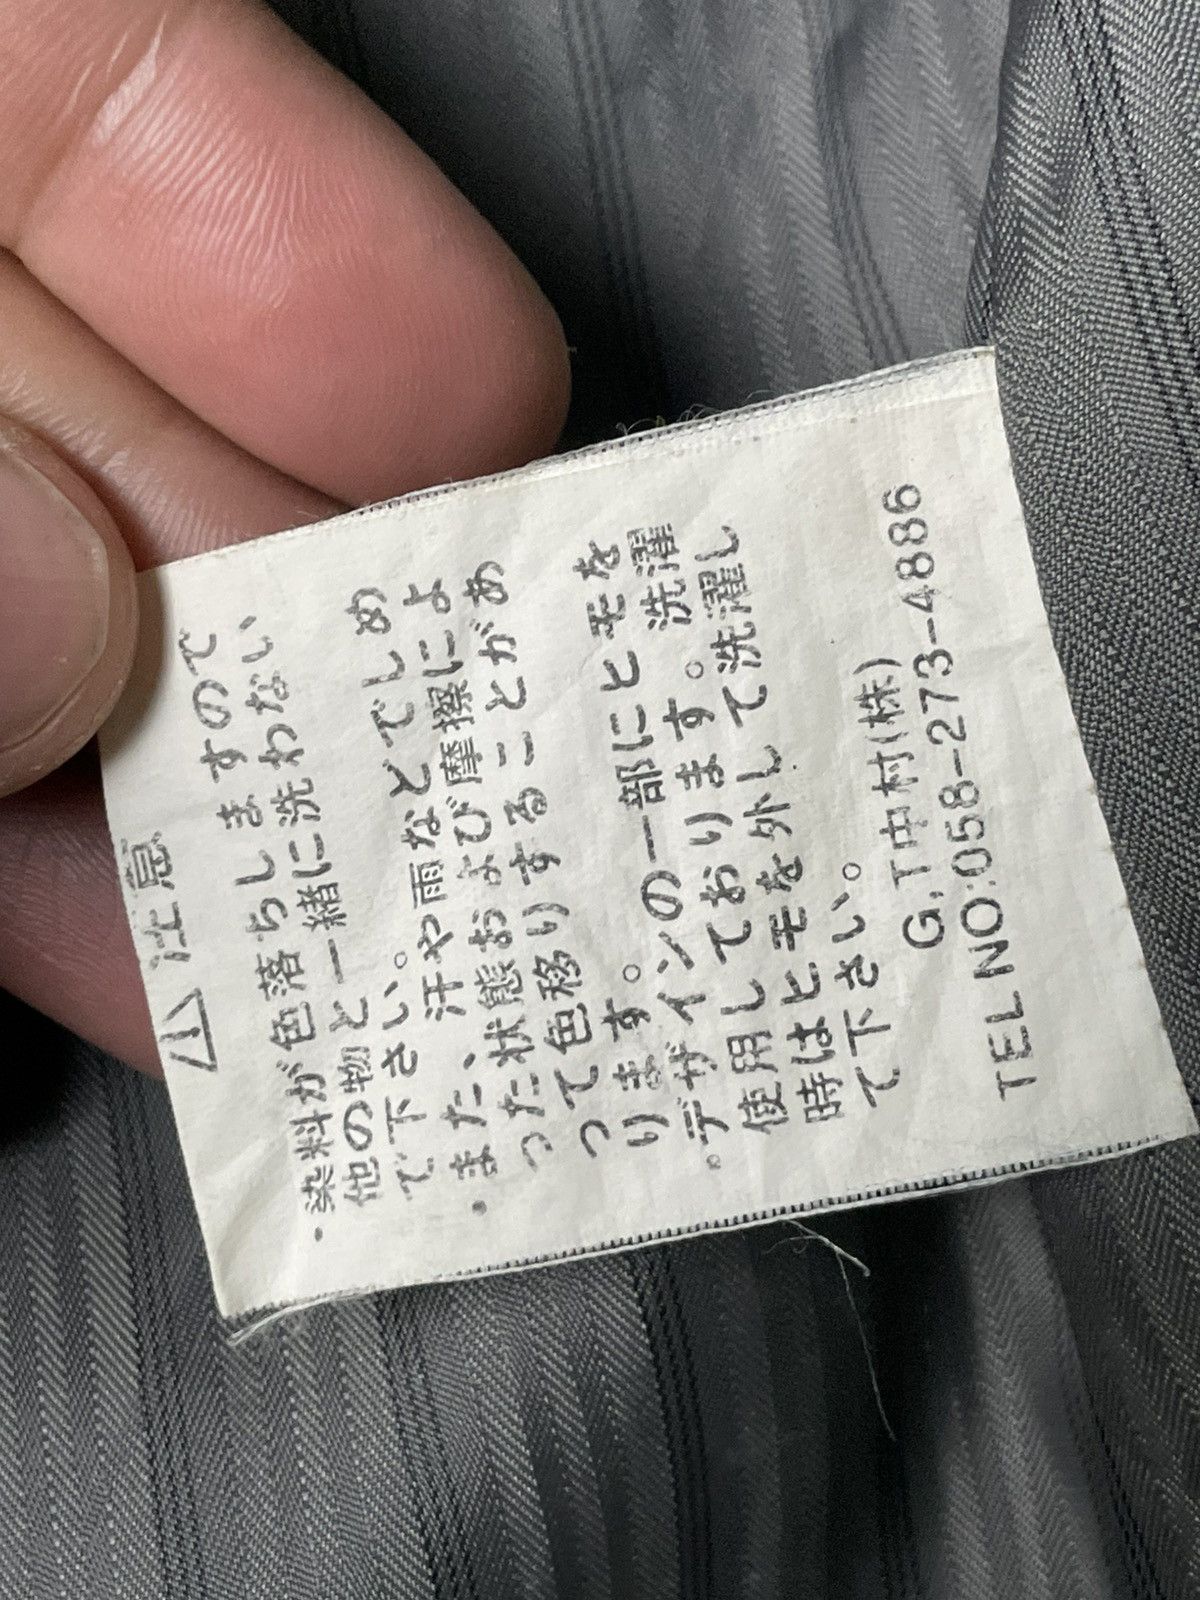 ⚠ 注意
・染料が色落ちしますので
他の物と一緒に洗わない
で下さい。
・また、汗や雨などでしめ
った状態および摩擦によ
って色移りすることがあ
ります。
・デザインの一部にヒモを
使用しております。洗濯
時はヒモを外して洗濯し
て下さい。
G,T中村(株)
TEL NO:058-273-4886